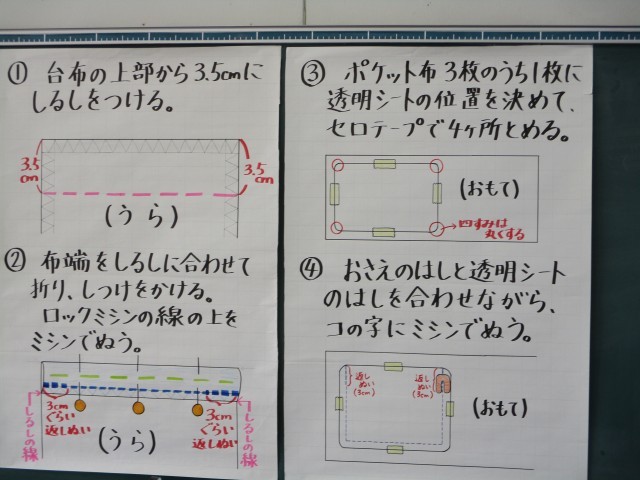 ① 台布の上部から3.5cmに
しるしをつける。
3.5
cm
3.5
cm
(うら)
② 布端をしるしに合わせて
折り、しつけをかける。
ロックミシンの線の上を
ミシンでぬう。
3cm
ぐらい
返しぬい
3cm
ぐらい
返しぬい
しるしの線
しるしの線
(うら)
③ ポケット布3枚のうち1枚に
透明シートの位置を決めて、
セロテープで4ヶ所とめる。
(おもて)
四すみは
丸くする
④ おさえのはしと透明シート
のはしを合わせながら、
コの字にミシンでぬう。
返し
ぬい
(3cm)
返し
ぬい
(3cm)
(おもて)